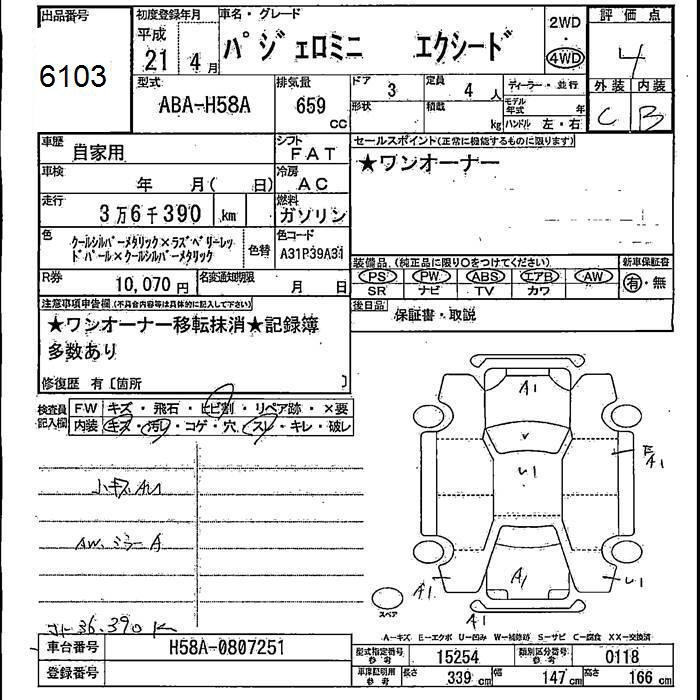 出品番号
6103
初度登録年月
平成
21年 4月
車名・グレード
パジェロミニ エクシード
2WD
・
4WD
評価点
4
外装 内装
C B
型式
ABA-H58A
排気量
659
CC
ドア
3
定員
4人
ディーラー・並行
形状
積載
kg
モデル年式 年
ハンドル 左・右
車歴
自家用
シフト
FAT
車検
年 月( 日)
冷房
AC
走行
3万6千390 km
燃料
ガソリン
色
クールシルバーメタリック×ラズベリーレッドパール×クールシルバーメタリック
色替
色コード
A31P39A31
R券
10,070円
名変通知期限
月 日
セールスポイント(正常に機能するものに限ります)
★ワンオーナー
装備品(純正品に限り○をつけてください)
PS PW ABS エアB AW
SR ナビ TV カワ
新車保証書
有・無
後日品
保証書・取説
注意事項申告欄(不具合内容等は具体的に記入して下さい)
★ワンオーナー移転抹消★記録簿
多数あり
修復歴 有〔箇所 〕
検査員記入欄
FW キズ・飛石・ヒビ割・リペア跡・×要
内装 キズ・汚レ・コゲ・穴・スレ・キレ・破レ
小キズAU
AW.ミラーA
36.390K
A1
U1
A1
A1
A1
U1
A1
スペア
A-キズ E-エクボ U-凹み W-補修跡 S-サビ C-腐食 XX-交換済
車台番号
H58A-0807251
登録番号
型式指定番号 参考
15254
類別区分番号 参考
0118
車庫証明用 参考
長さ 339cm 幅 147cm 高さ 166cm